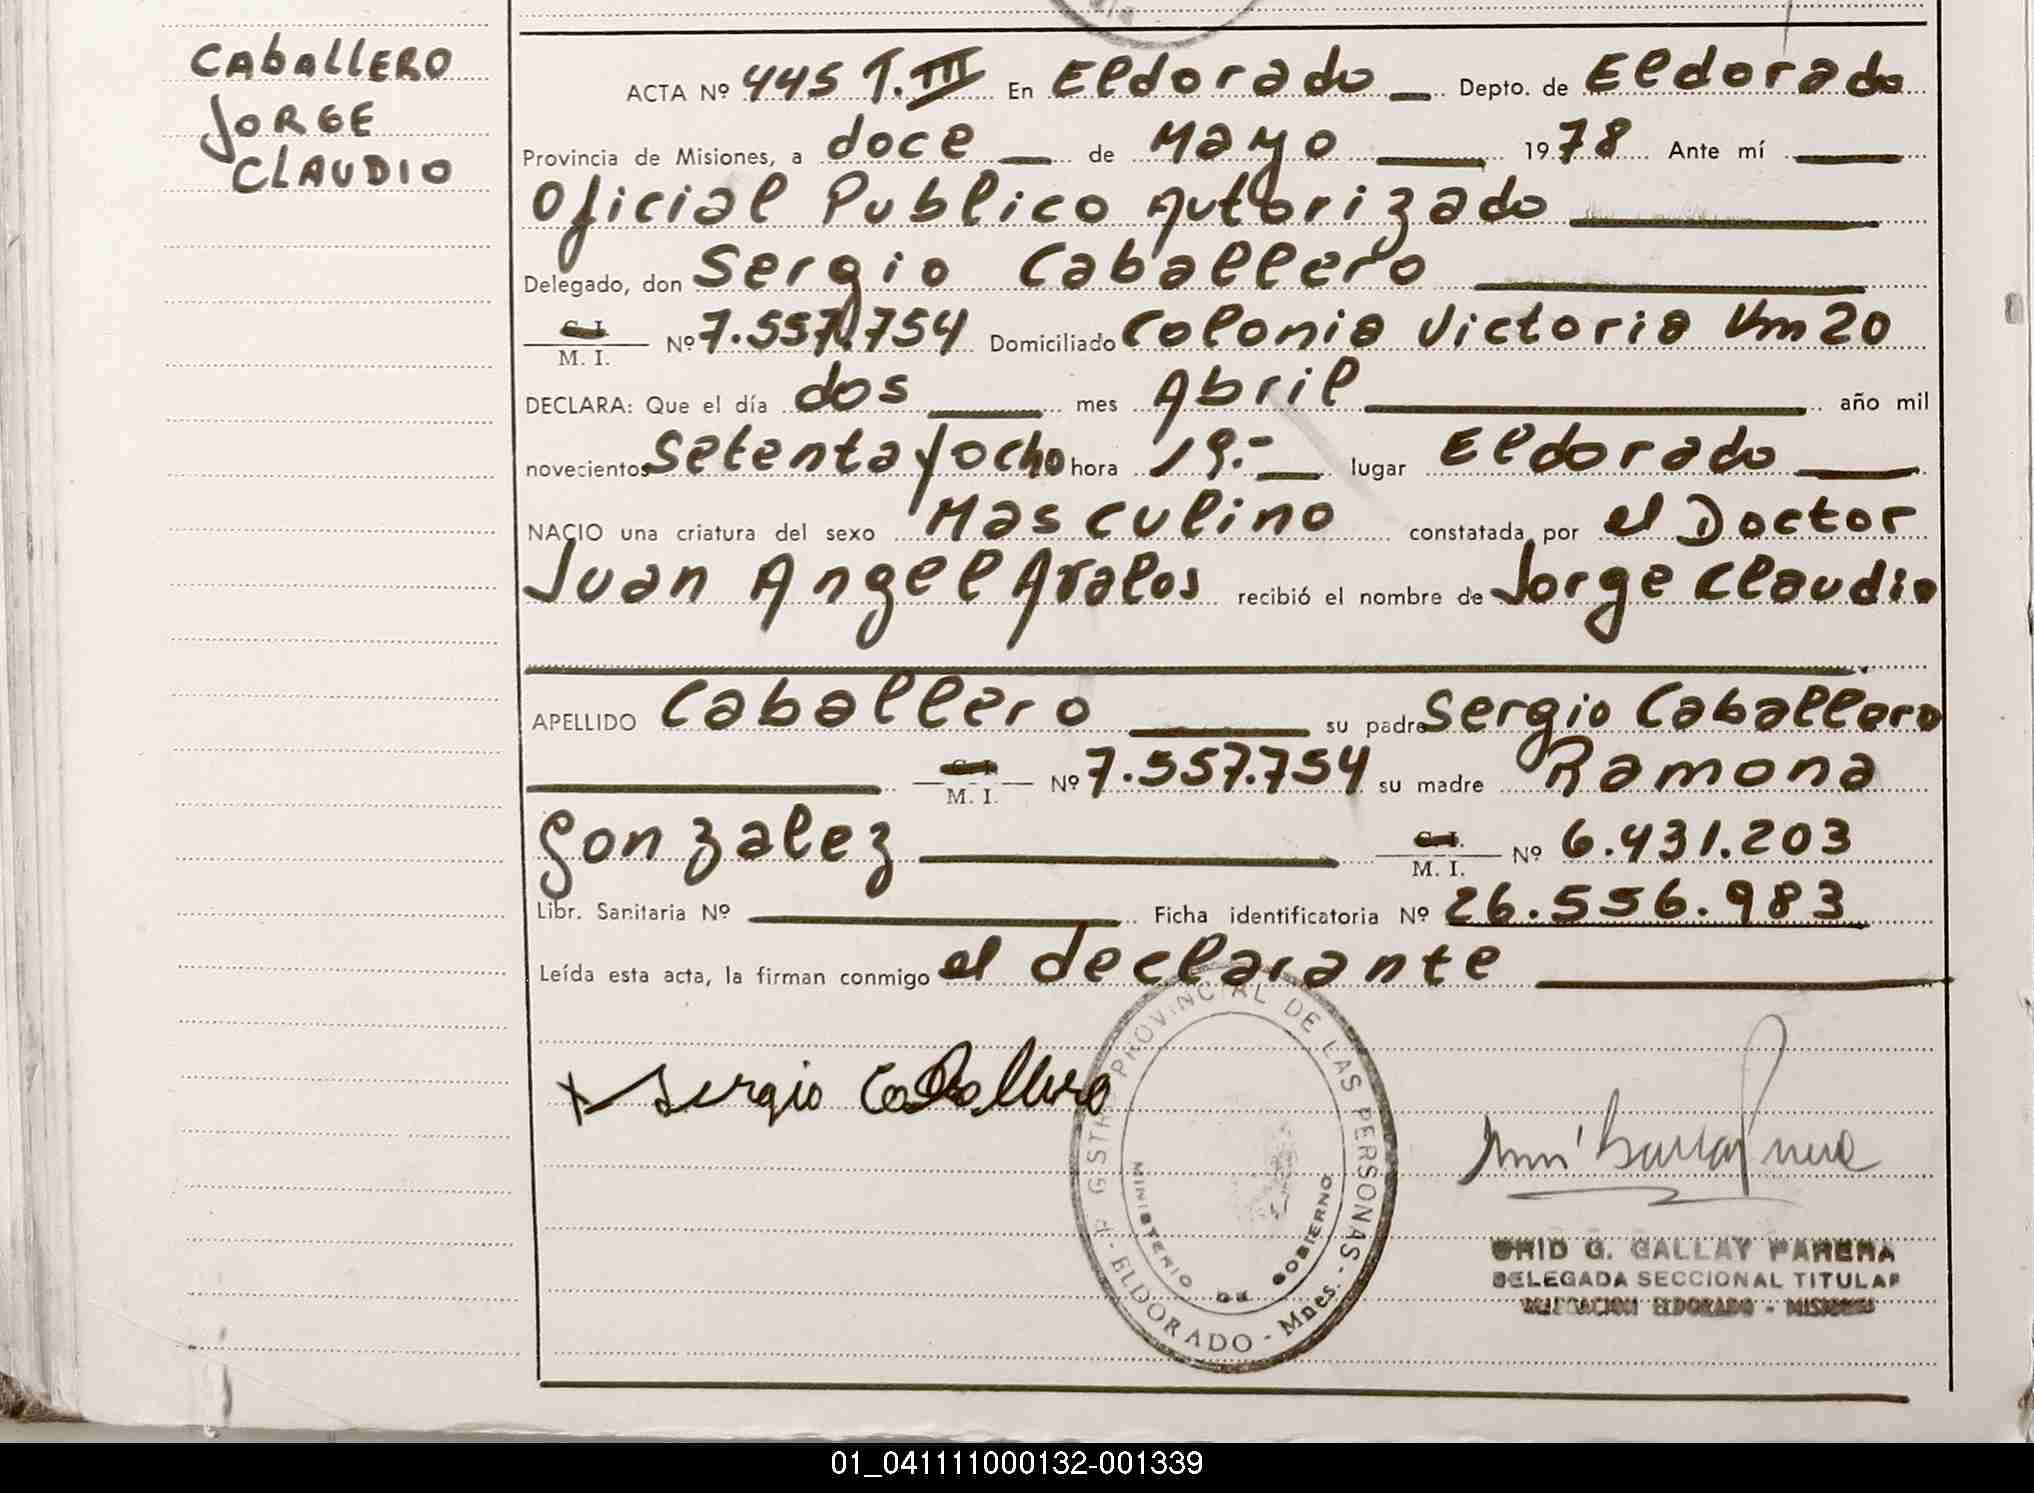 CABALLERO
JORGE
CLAUDIO
ACTA Nº 445 T. III En Eldorado Depto. de Eldorado
Provincia de Misiones, a doce de Mayo 1978 Ante mí
Oficial Publico Autorizado
Delegado, don Sergio Caballero
C. I.
M. I. Nº 7.557.754 Domiciliado Colonia Victoria Km 20
DECLARA: Que el día dos mes Abril año mil
novecientos Setenta y ocho hora 19.- lugar Eldorado
NACIO una criatura del sexo Masculino constatada por el Doctor
Juan Angel Avalos recibió el nombre de Jorge Claudio
APELLIDO Caballero su padre Sergio Caballero
C. I.
M. I. Nº 7.557.754 su madre Ramona
Gonzalez C. I.
M. I. Nº 6.431.203
Libr. Sanitaria Nº Ficha identificatoria Nº 26.556.983
Leída esta acta, la firman conmigo el declarante
Sergio Caballero
PROVINCIAL DE LAS PERSONAS
MINISTERIO DE GOBIERNO
ELDORADO - Mnes.
G. GALLAY PARERA
DELEGADA SECCIONAL TITULAR
DELEGACION ELDORADO - MISIONES
01_041111000132-001339